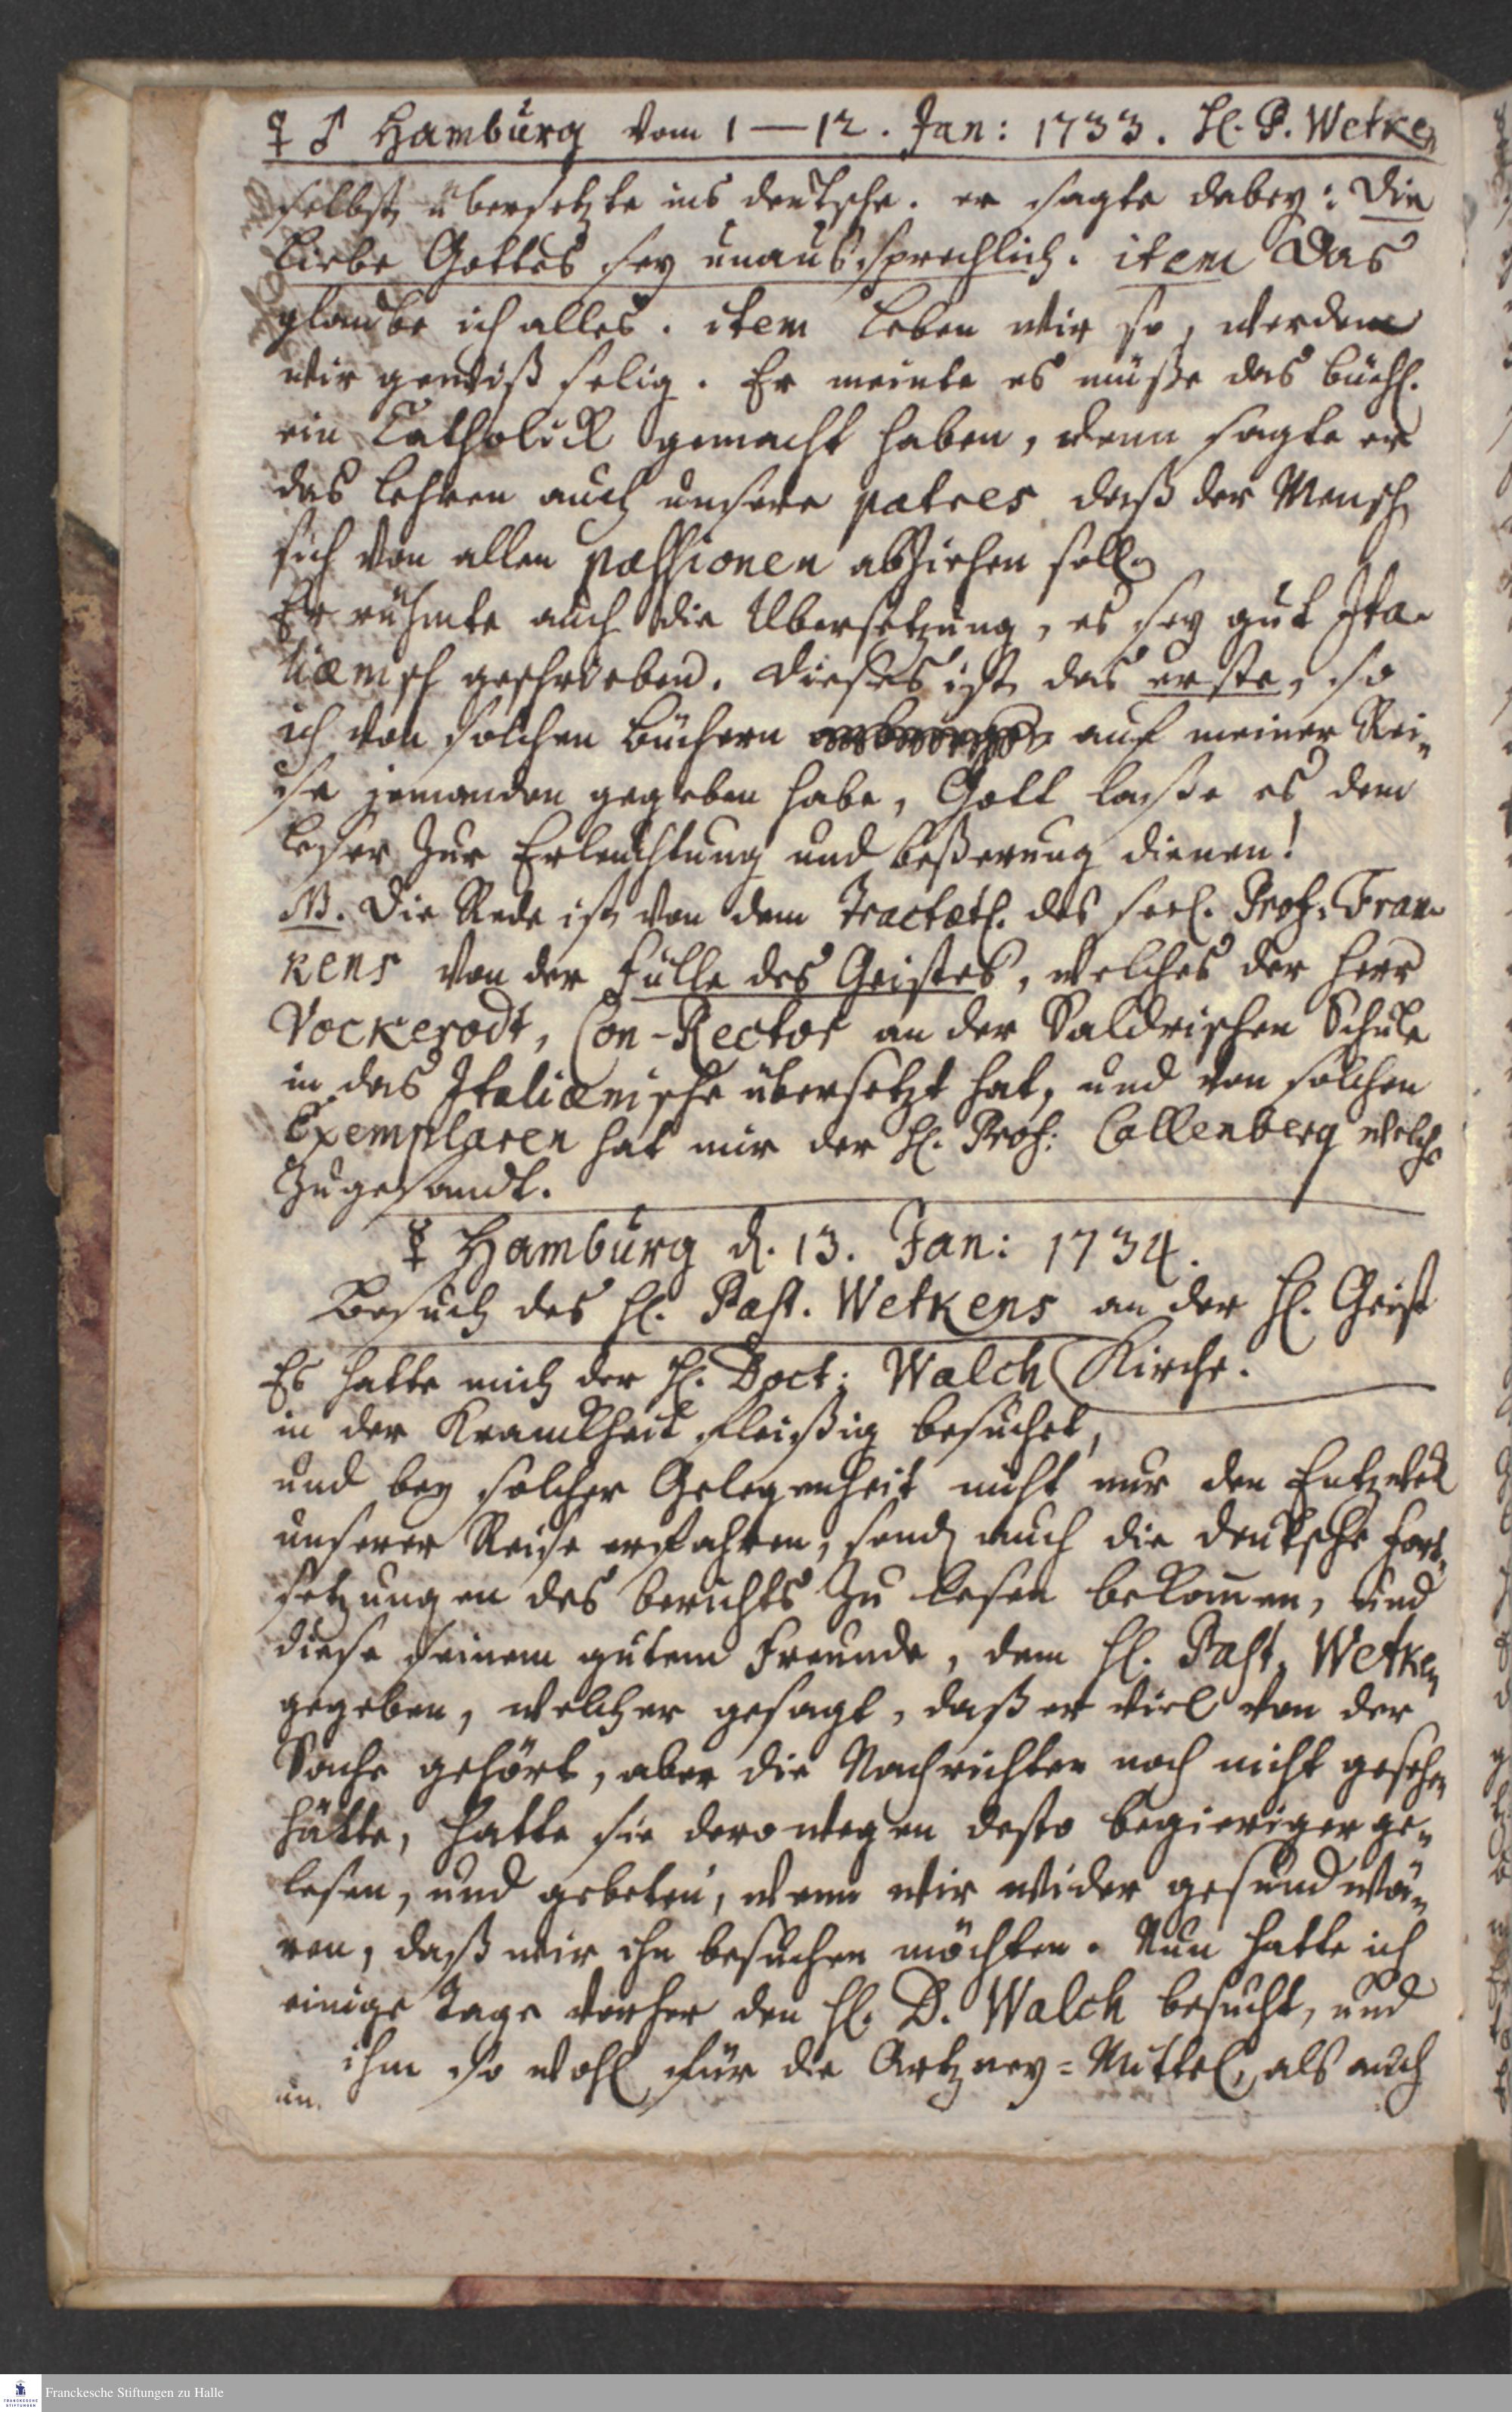 ♀ ♂ Hamburg vom 1 — 12. Jan: 1733. H. P. Wetken
selbst übersetzte ins deutsche. er sagte dabey: Die
Liebe Gottes sey unaussprechlich. item Das
glaube ich alles. item Leben wir so, werden
wir gewiß selig. Er meinte es müße das büchl.
ein Catholick gemacht haben, denn sagte er
das lehren auch unsere patres daß der Mensch
sich von allen passionen abziehen soll.
Er rühmte auch die Ubersetzung, es sey gut Ita-
liænisch geschrieben. Dieses ist das erste, so
ich von solchen Büchern auf meiner Rei-
se jemanden gegeben habe, Gott laße es dem
Leser zur Erleuchtung und beßerung dienen!
NB. Die Rede ist von dem Tractætl. des seel. Prof. Fran-
kens von der Fülle des Geistes, welches der Herr
Vockerodt, Con-Rector an der Saldrischen Schule
in das Italiænische übersetzt hat, und von solchen
Exemplaren hat mir der H. Prof: Callenberg welche
zugesandt.
☿ Hamburg d. 13. Jan: 1734.
Besuch des H. Past. Wetkens an der H. Geist
Kirche.
Es hatte mich der H. Doct: Walch
in der Kranckheit fleißig besuchet,
und bey solcher Gelegenheit nicht nur den Entzweck
unserer Reise erfahren, sond. auch die deutsche Fort-
setzungen des berichts zu lesen bekommen, und
diese seinem gutem Freunde, dem H. Past. Wetken
gegeben, welcher gesagt, daß er viel von der
Sache gehört, aber die Nachrichten noch nicht gesehen
hätte, hatte sie derowegen desto begieriger ge-
lesen, und gebeten, wenn wir wider gesund wä-
ren, daß wir ihn besuchen möchten. Nun hatte ich
einige Tage vorher den H. D. Walch besucht, und
ihm so wohl für die Artzney-Mittel, als auch
Franckesche Stiftungen zu Halle